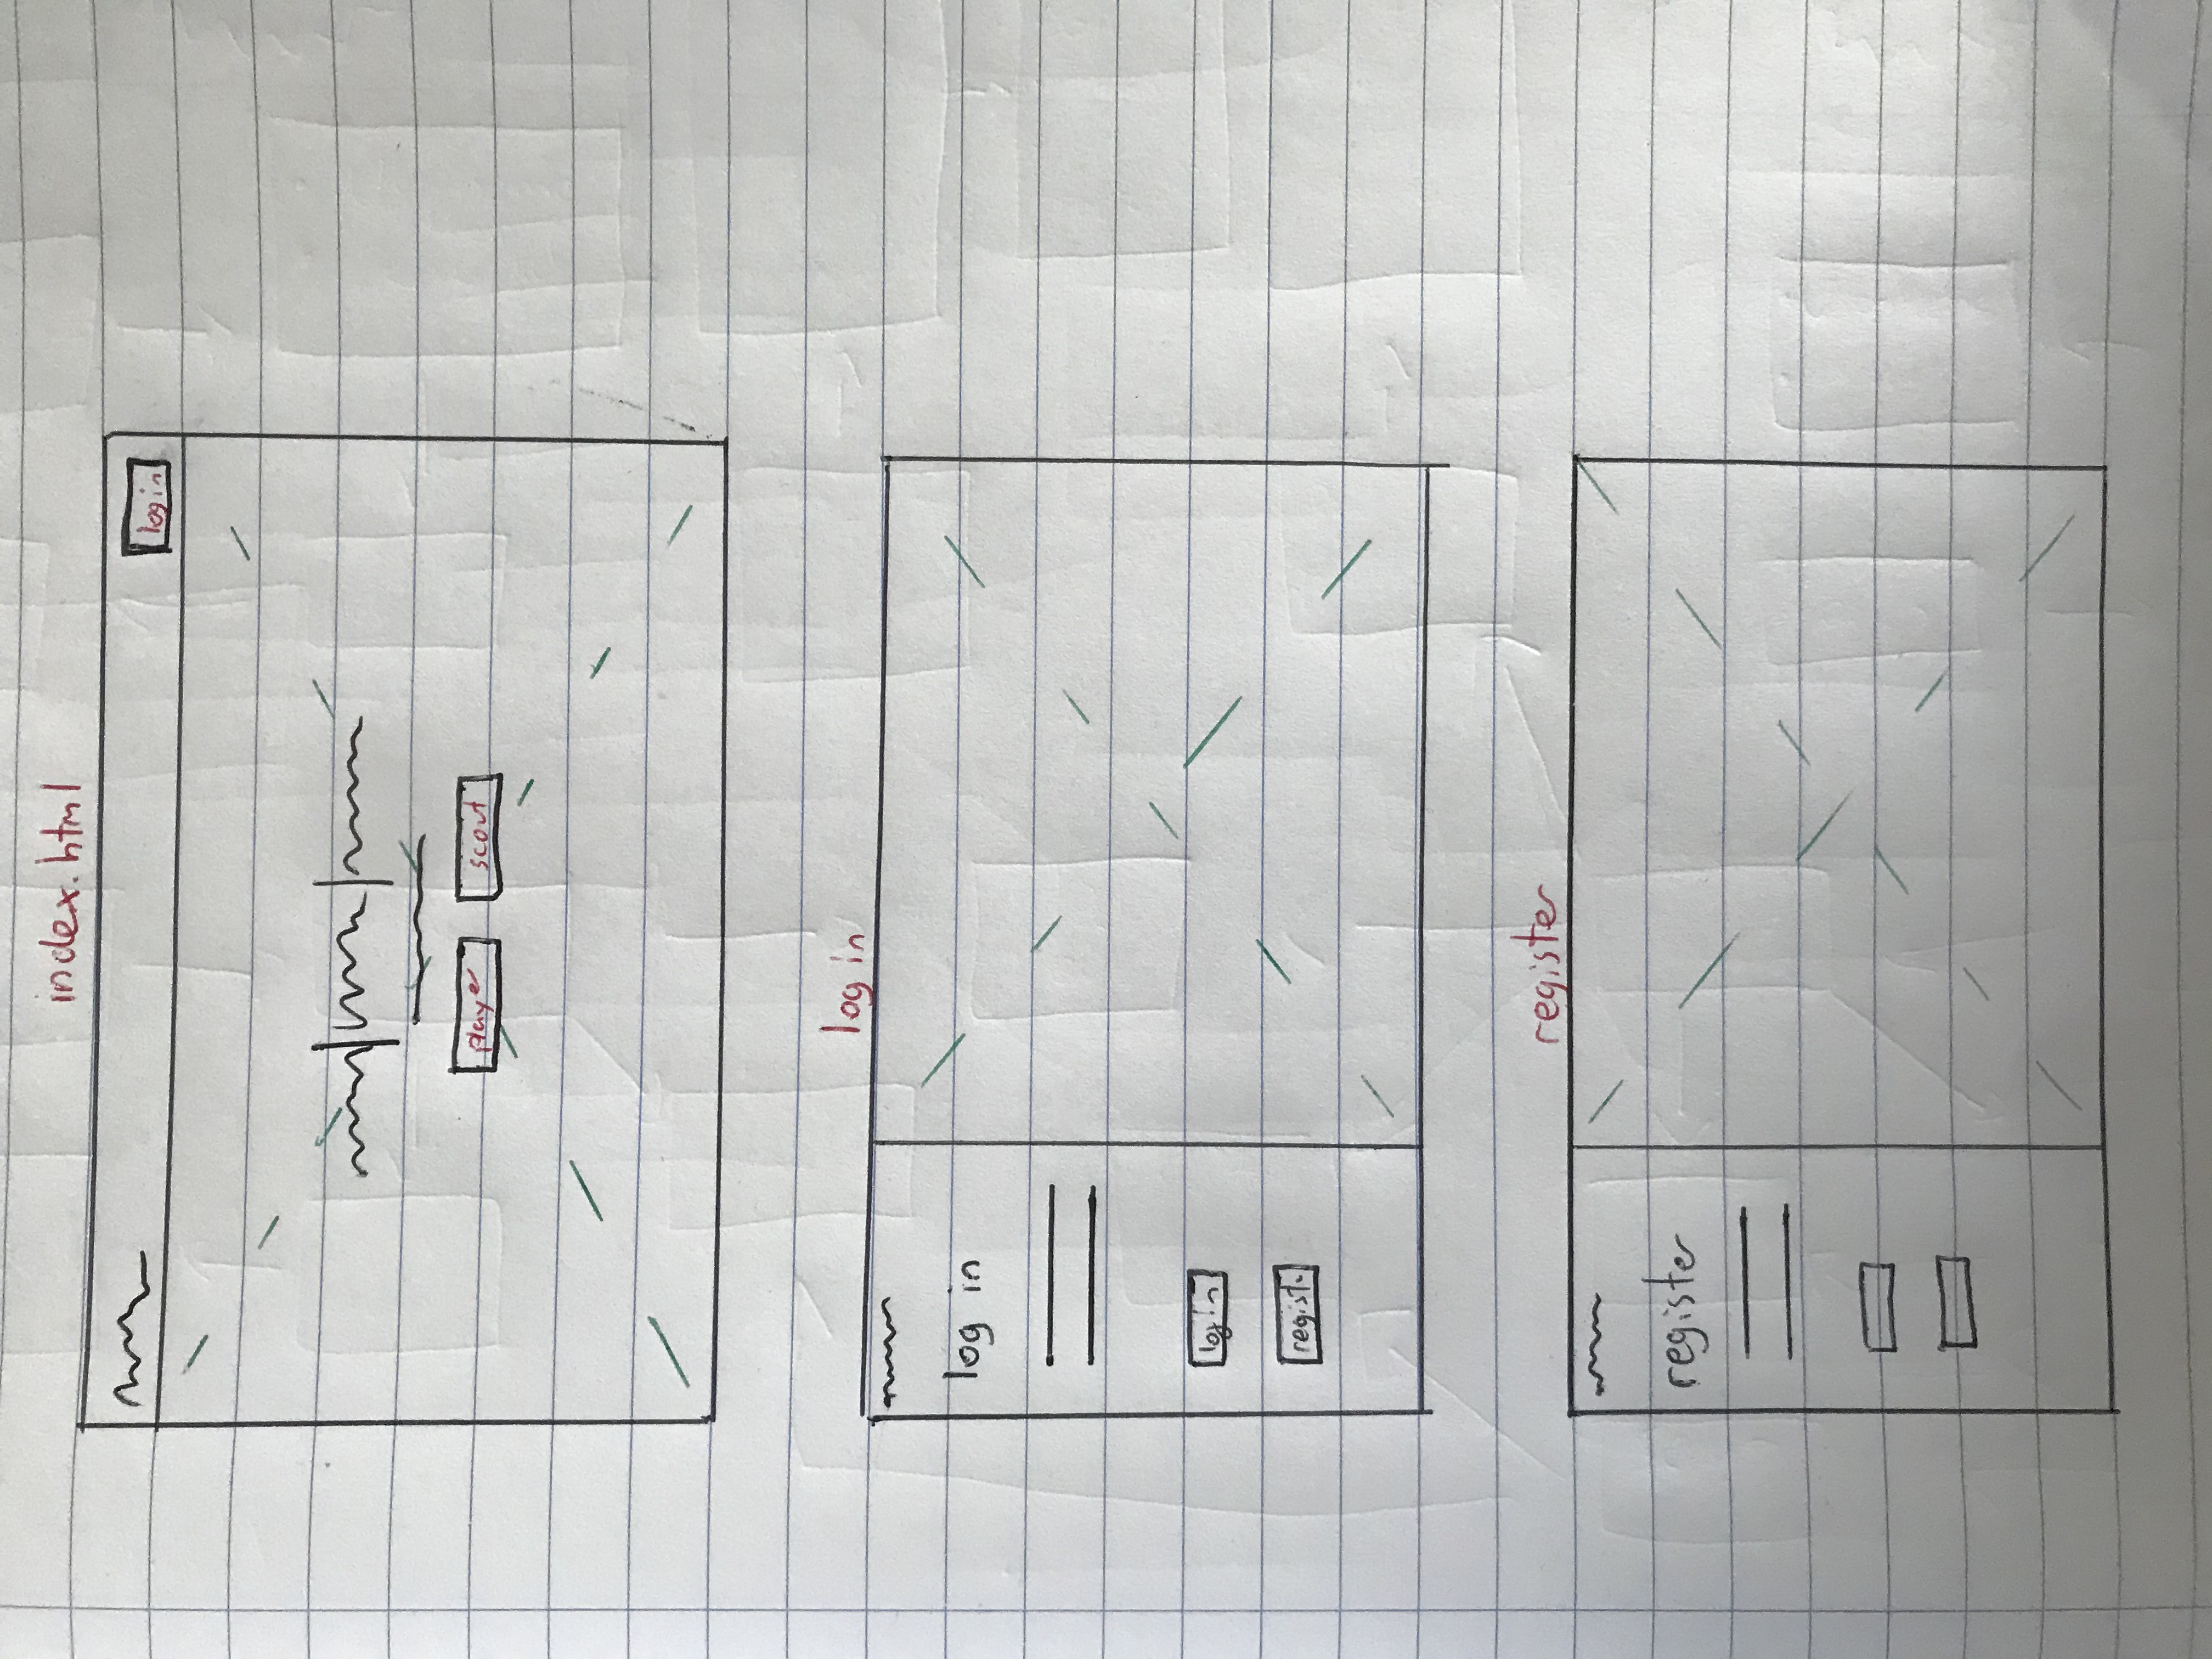 index.html
login
player scout
log in
log in
log in
register
register